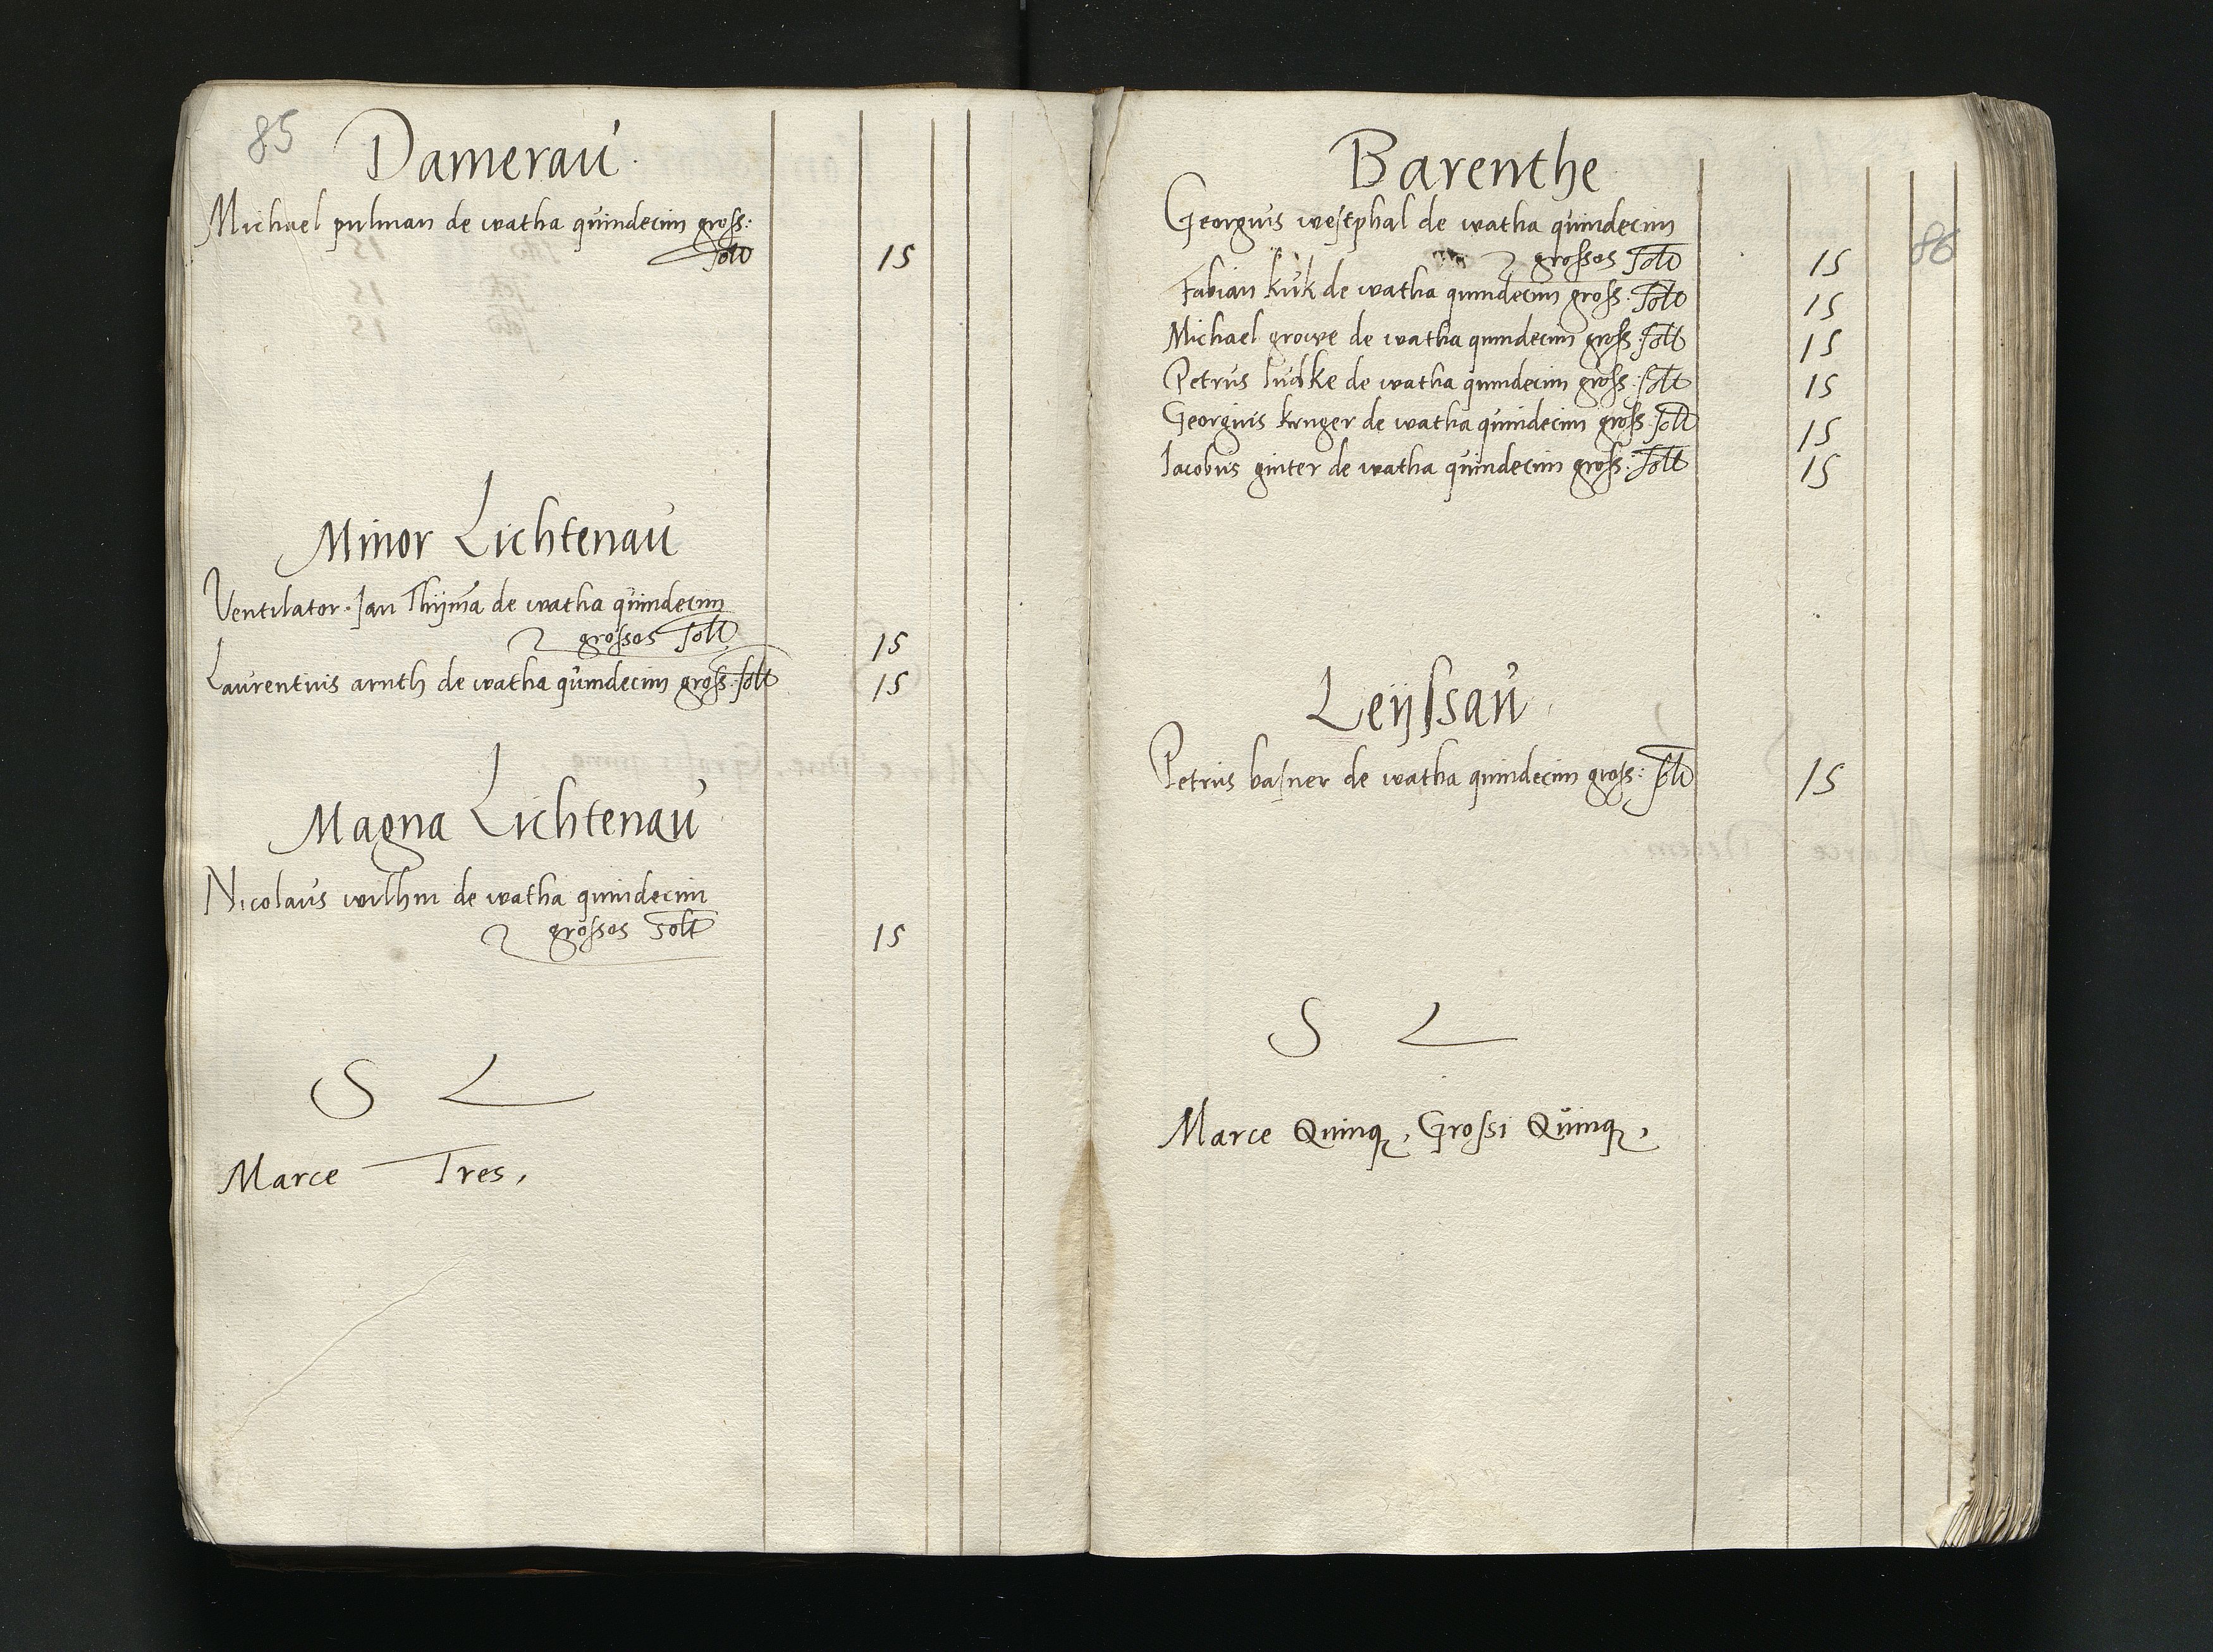 85
Damerau
Michael pulman de watha quindecim gross:
solt 15
Minor Lichtenau
Ventilator. Jan Thijma de watha quindecim
grossos solt 15
Laurentius arnth de watha quindecim gross: solt 15
Magna Lichtenau
Nicolaus wilhm de watha quindecim
grossos solt 15
S L
Marce Tres,
Barenthe
86
Georgius westphal de watha quindecim
grossos solt 15
Fabian kuk de watha quindecim gross. solt 15
Michael growe de watha quindecim gross. solt 15
Petrus ludke de watha quindecim gross: solt 15
Georgius kruger de watha quindecim gross. solt 15
Jacobus ginter de watha quindecim gross: solt 15
Leyssau
Petrus basner de watha quindecim gross: solt 15
S L
Marce Quinq, Grossi Quinq,